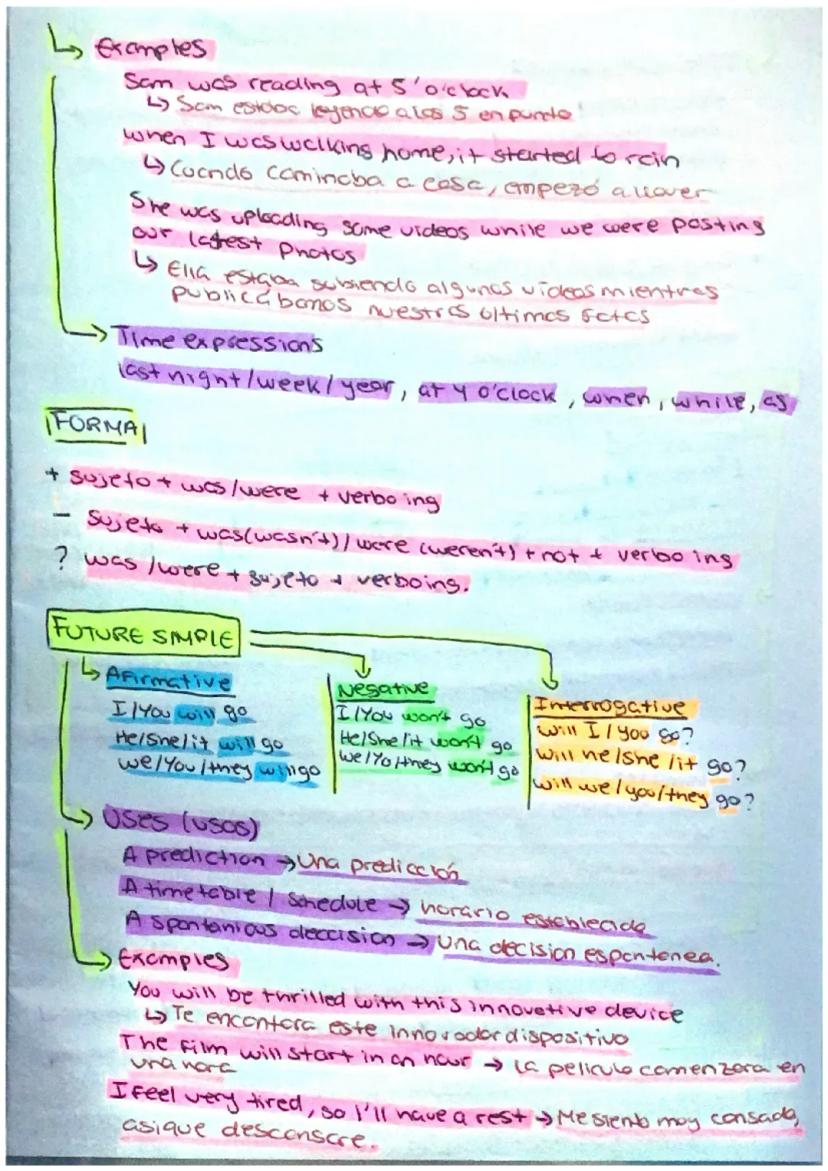 Examples
Sam was reading at 5'o'clock
Sam estaba leyendo a las 5 en punto
when I was walking home, it started to rain
Cuando caminaba a casa, empezó a llover
She was uploading some videos while we were posting
our latest photos
Ella estaba subiendo algunos vídeos mientras
publicábamos nuestras últimas fotos
Time expressions
last night/week/year, at 4 o'clock, when, while, as
FORMA
+ sujeto + was/were + verbo ing
- sujeto + was(wasn't)/were (weren't) + not + verbo ing
? was/were + sujeto + verbo ing.
FUTURE SIMPLE
Afirmative
I/You will go
He/She/it will go
we/You/they will go
Negative
I/You won't go
He/She/it won't go
we/Yo/they won't go
Interrogative
will I/you go?
will he/she/it go?
will we/you/they go?
USES (usos)
A prediction → Una predicción
A timetable / schedule → horario establecido
A spontanious deccision → Una decision espontanea.
Examples
You will be thrilled with this innovative device
Te encantara este innovador dispositivo
The film will start in an hour → La pelicula comenzara en
una hora
I feel very tired, so I'll have a rest → Me siento muy cansada,
asique descansare.